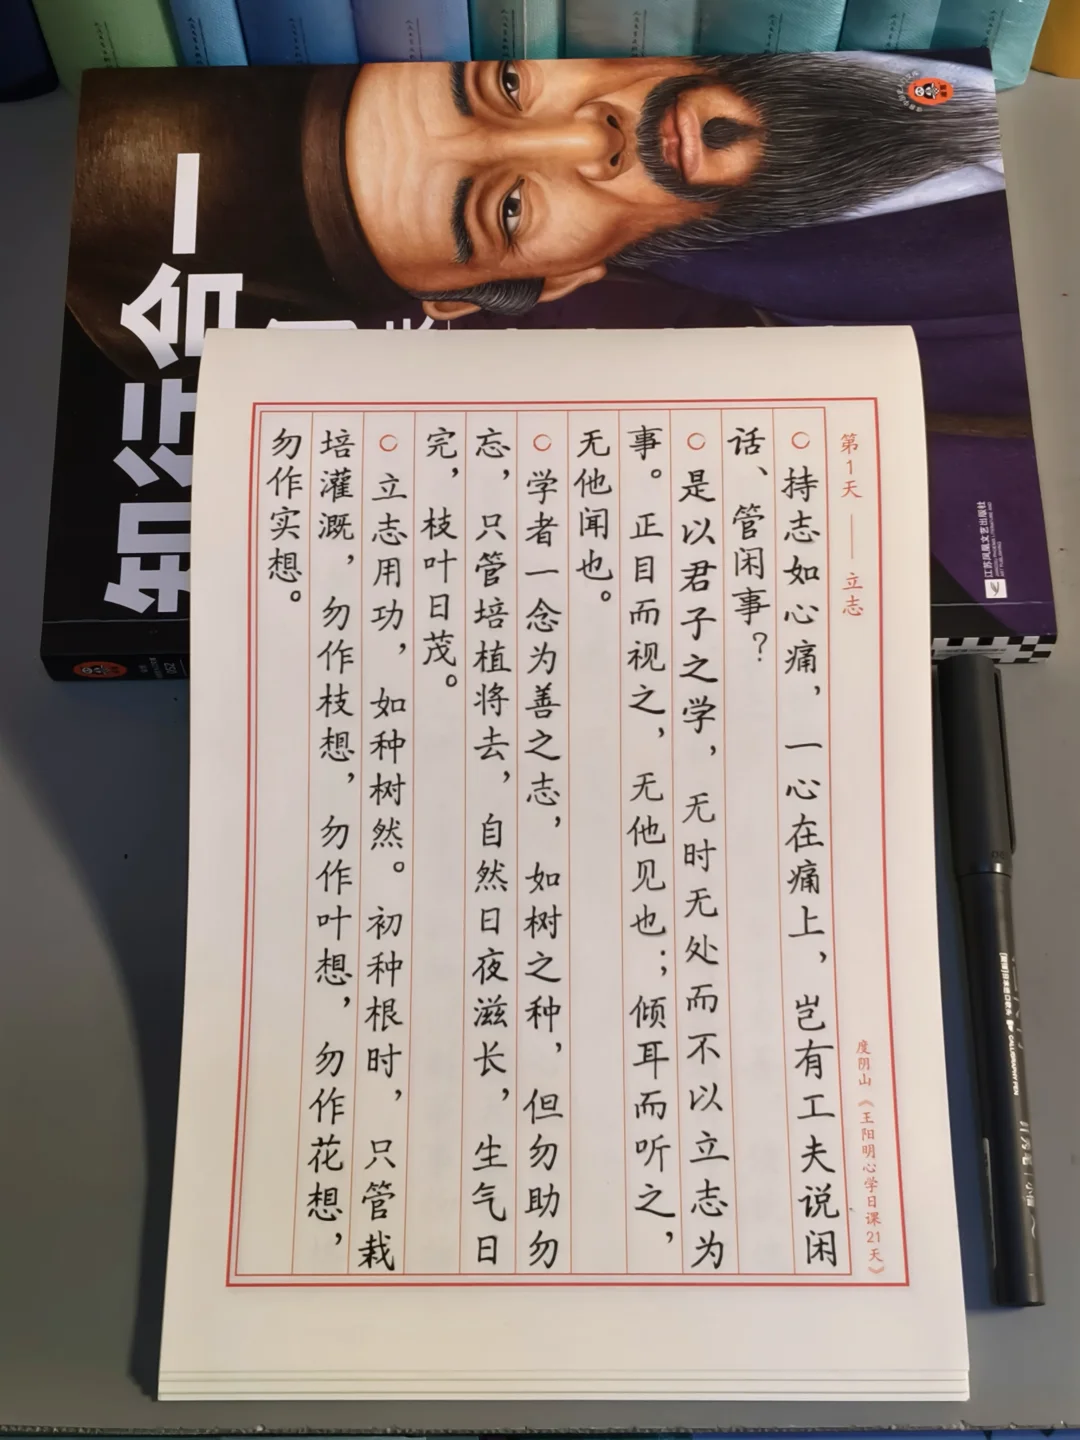 知行合一
江苏凤凰文艺出版社
第1天 —— 立志
○ 持志如心痛，一心在痛上，岂有工夫说闲
话、管闲事？
○ 是以君子之学，无时无处而不以立志为
事。正目而视之，无他见也；倾耳而听之，
无他闻也。
○ 学者一念为善之志，如树之种，但勿助勿
忘，只管培植将去，自然日夜滋长，生气日
完，枝叶日茂。
○ 立志用功，如种树然。初种根时，只管栽
培灌溉，勿作枝想，勿作叶想，勿作花想，
勿作实想。
度阴山《王阳明心学日课21天》